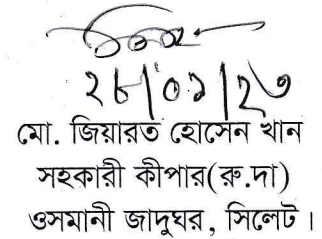 ২৮|০১|২৩
মো. জিয়ারত হোসেন খান
সহকারী কীপার(রু.দা)
ওসমানী জাদুঘর, সিলেট।